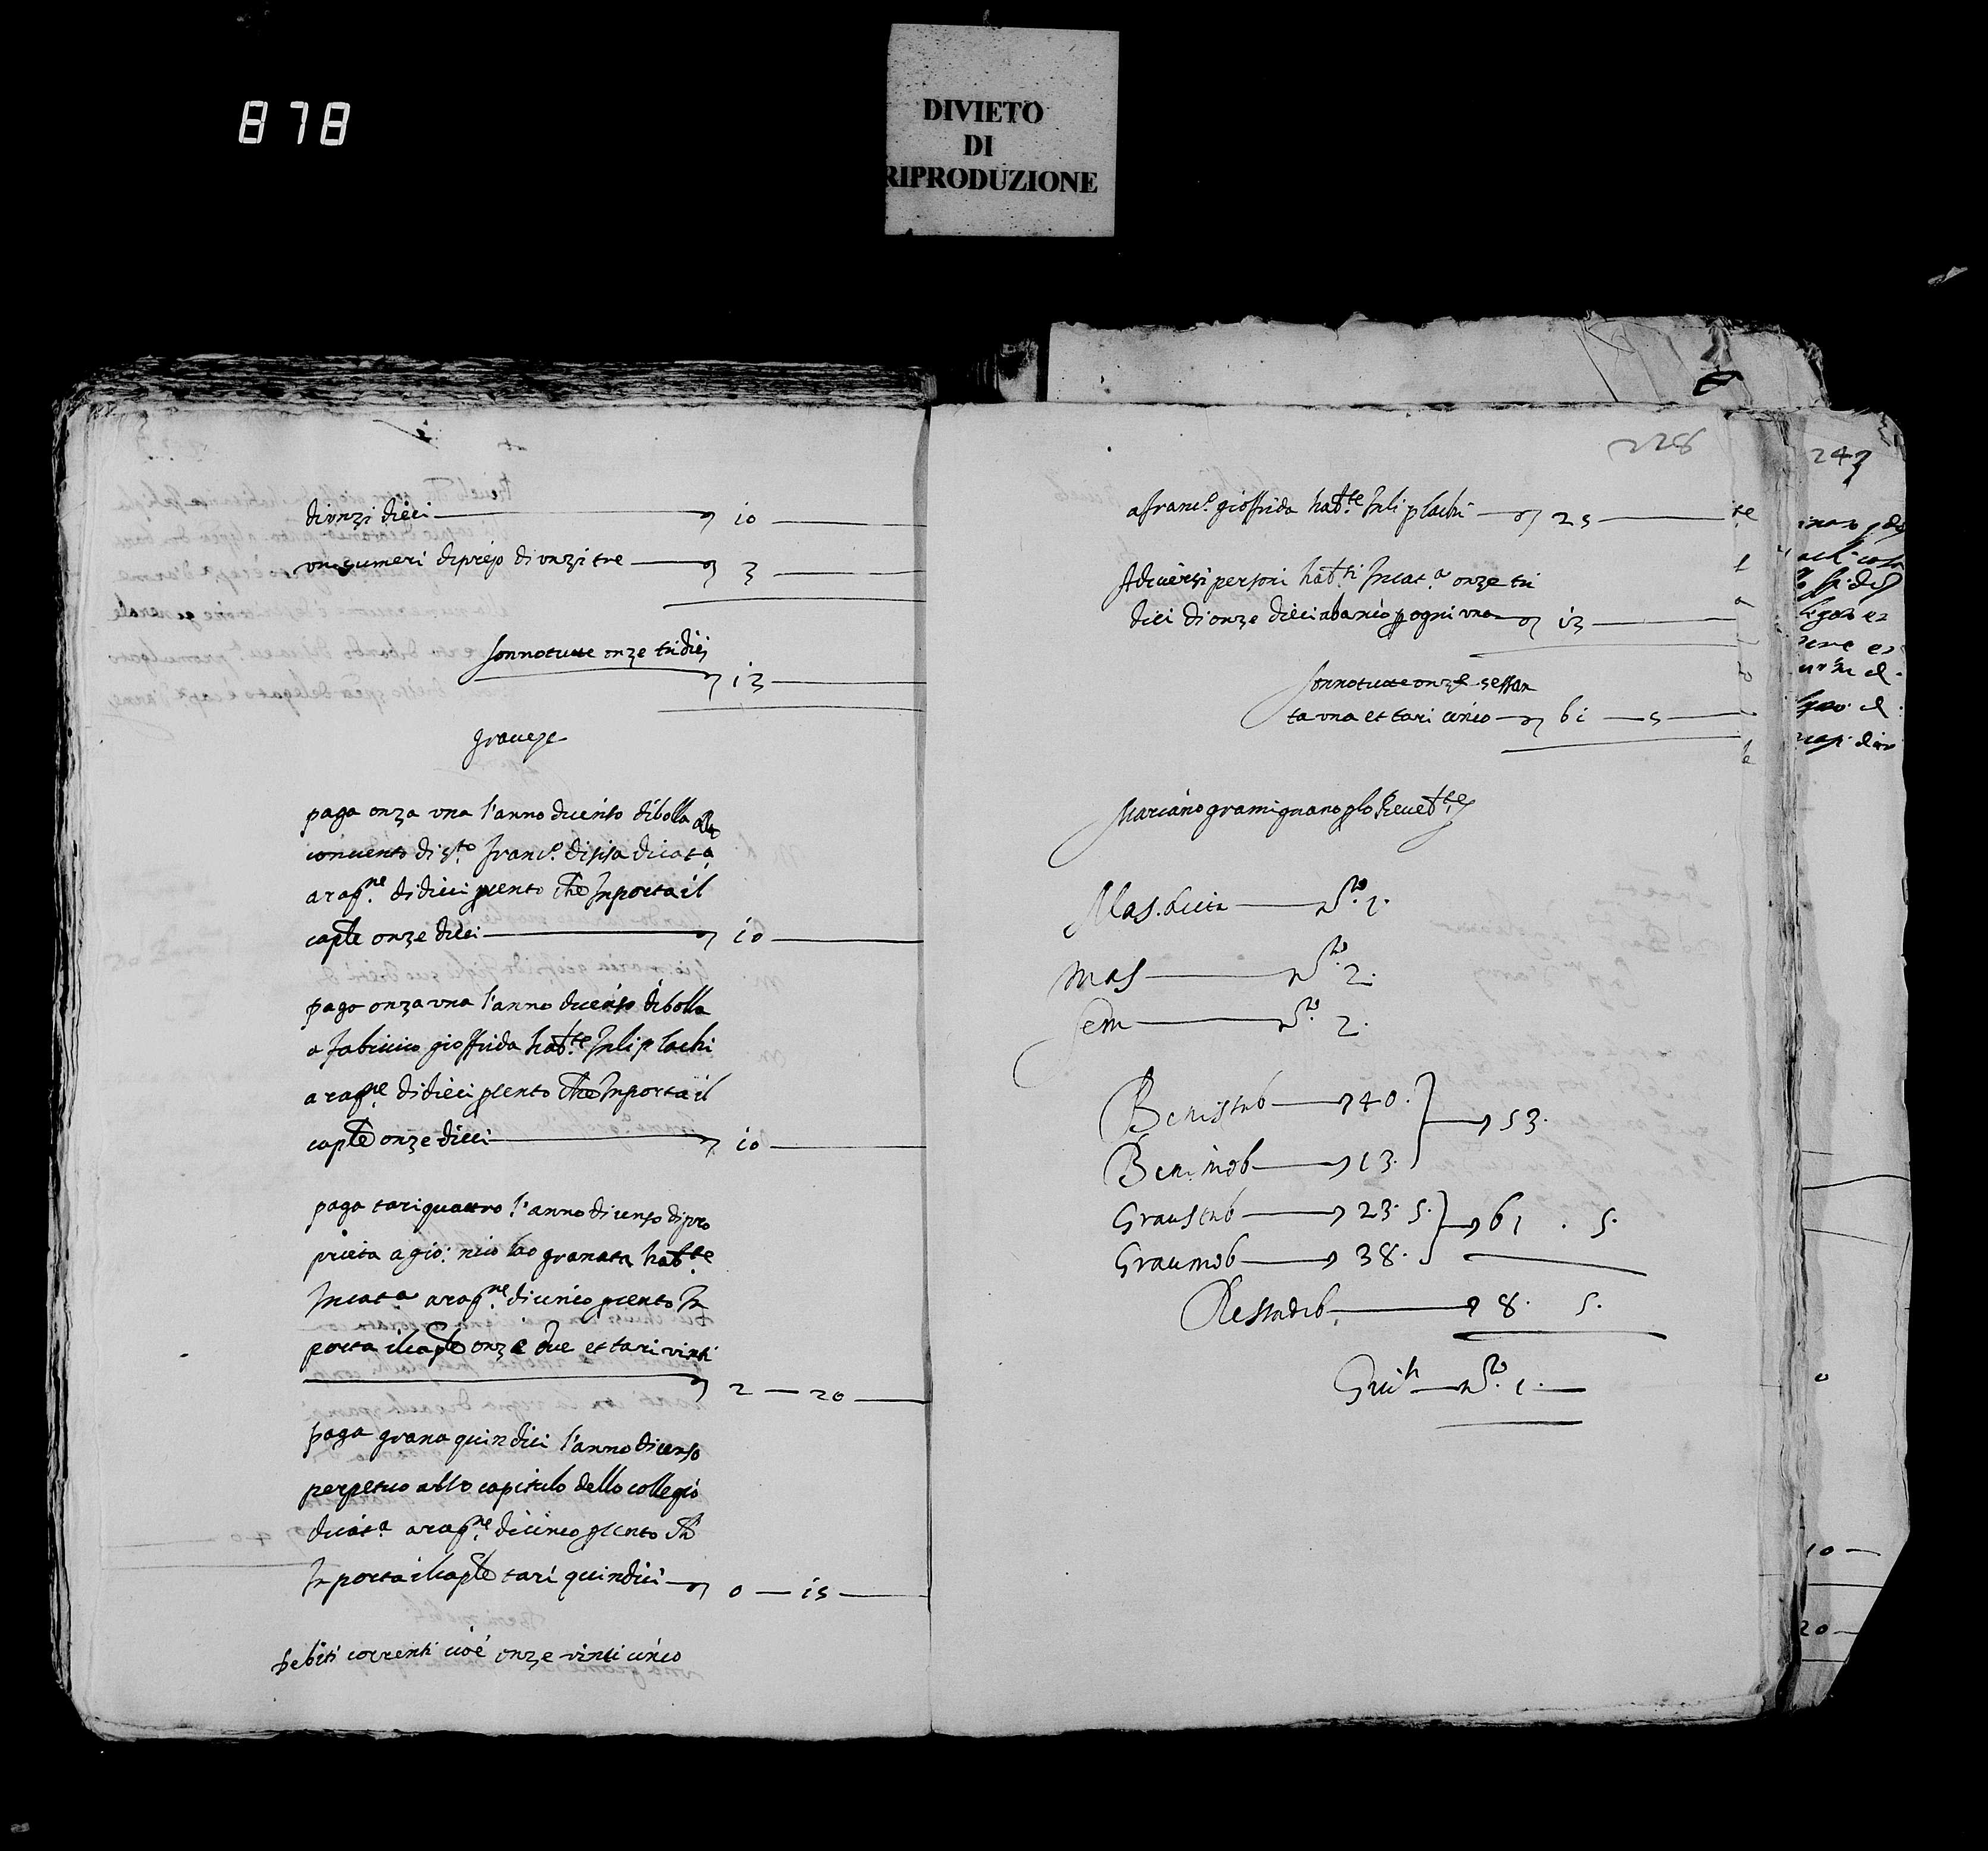 878
DIVIETO
DI
RIPRODUZIONE
di onzi dieci 10
un sumeri di prejo di unzi tre 3
sonno tutte onze tridici
13
graveze
paga onza una l'anno di censo di bolla allo
convento di s.to franc.o di sisa di cat.a
a rag.ne di dieci per cento che Inporta il
cap.le onze dieci 10
paga onza una l'anno di censo di bolla
a fabricio gioffrida hab.te In li plachi
a rag.ne di dieci per cento che Inporta il
cap.le onze dieci 10
paga tari quattro l'anno di censo di pro
prieta a gio: nicolao granata hab.te
In cat.a a rag.ne di cinco per cento In
porta il cap.le onze due et tari vinti
2 20
paga grana quindici l'anno di censo
perpetuo allo capitulo dello collegio
di cat.a a rag.ne di cinco per cento ch
Inporta il cap.le tari quindici 0 15
Debiti correnti cioè onze vinti cinco
228
a franc.o gioffrida hab.te In li plachi 25
A diversi persori hab.ti In cat.a onze tri
dici di onze dieci abascio per ogni una 13
sonno tutte onze sessan
ta una et tari cinco 61 5
Mariano gramignano per lo Revel.te
Mas. N.ro 1.
mas N.ro 2.
fem N.ro 2.
Beni stab 40.
53.
Beni mob 13.
Grav stab 23. 5.
61 . 5.
Grav mob 38.
Resta deb. 8. 5.
N.ro 1.
247
10
20